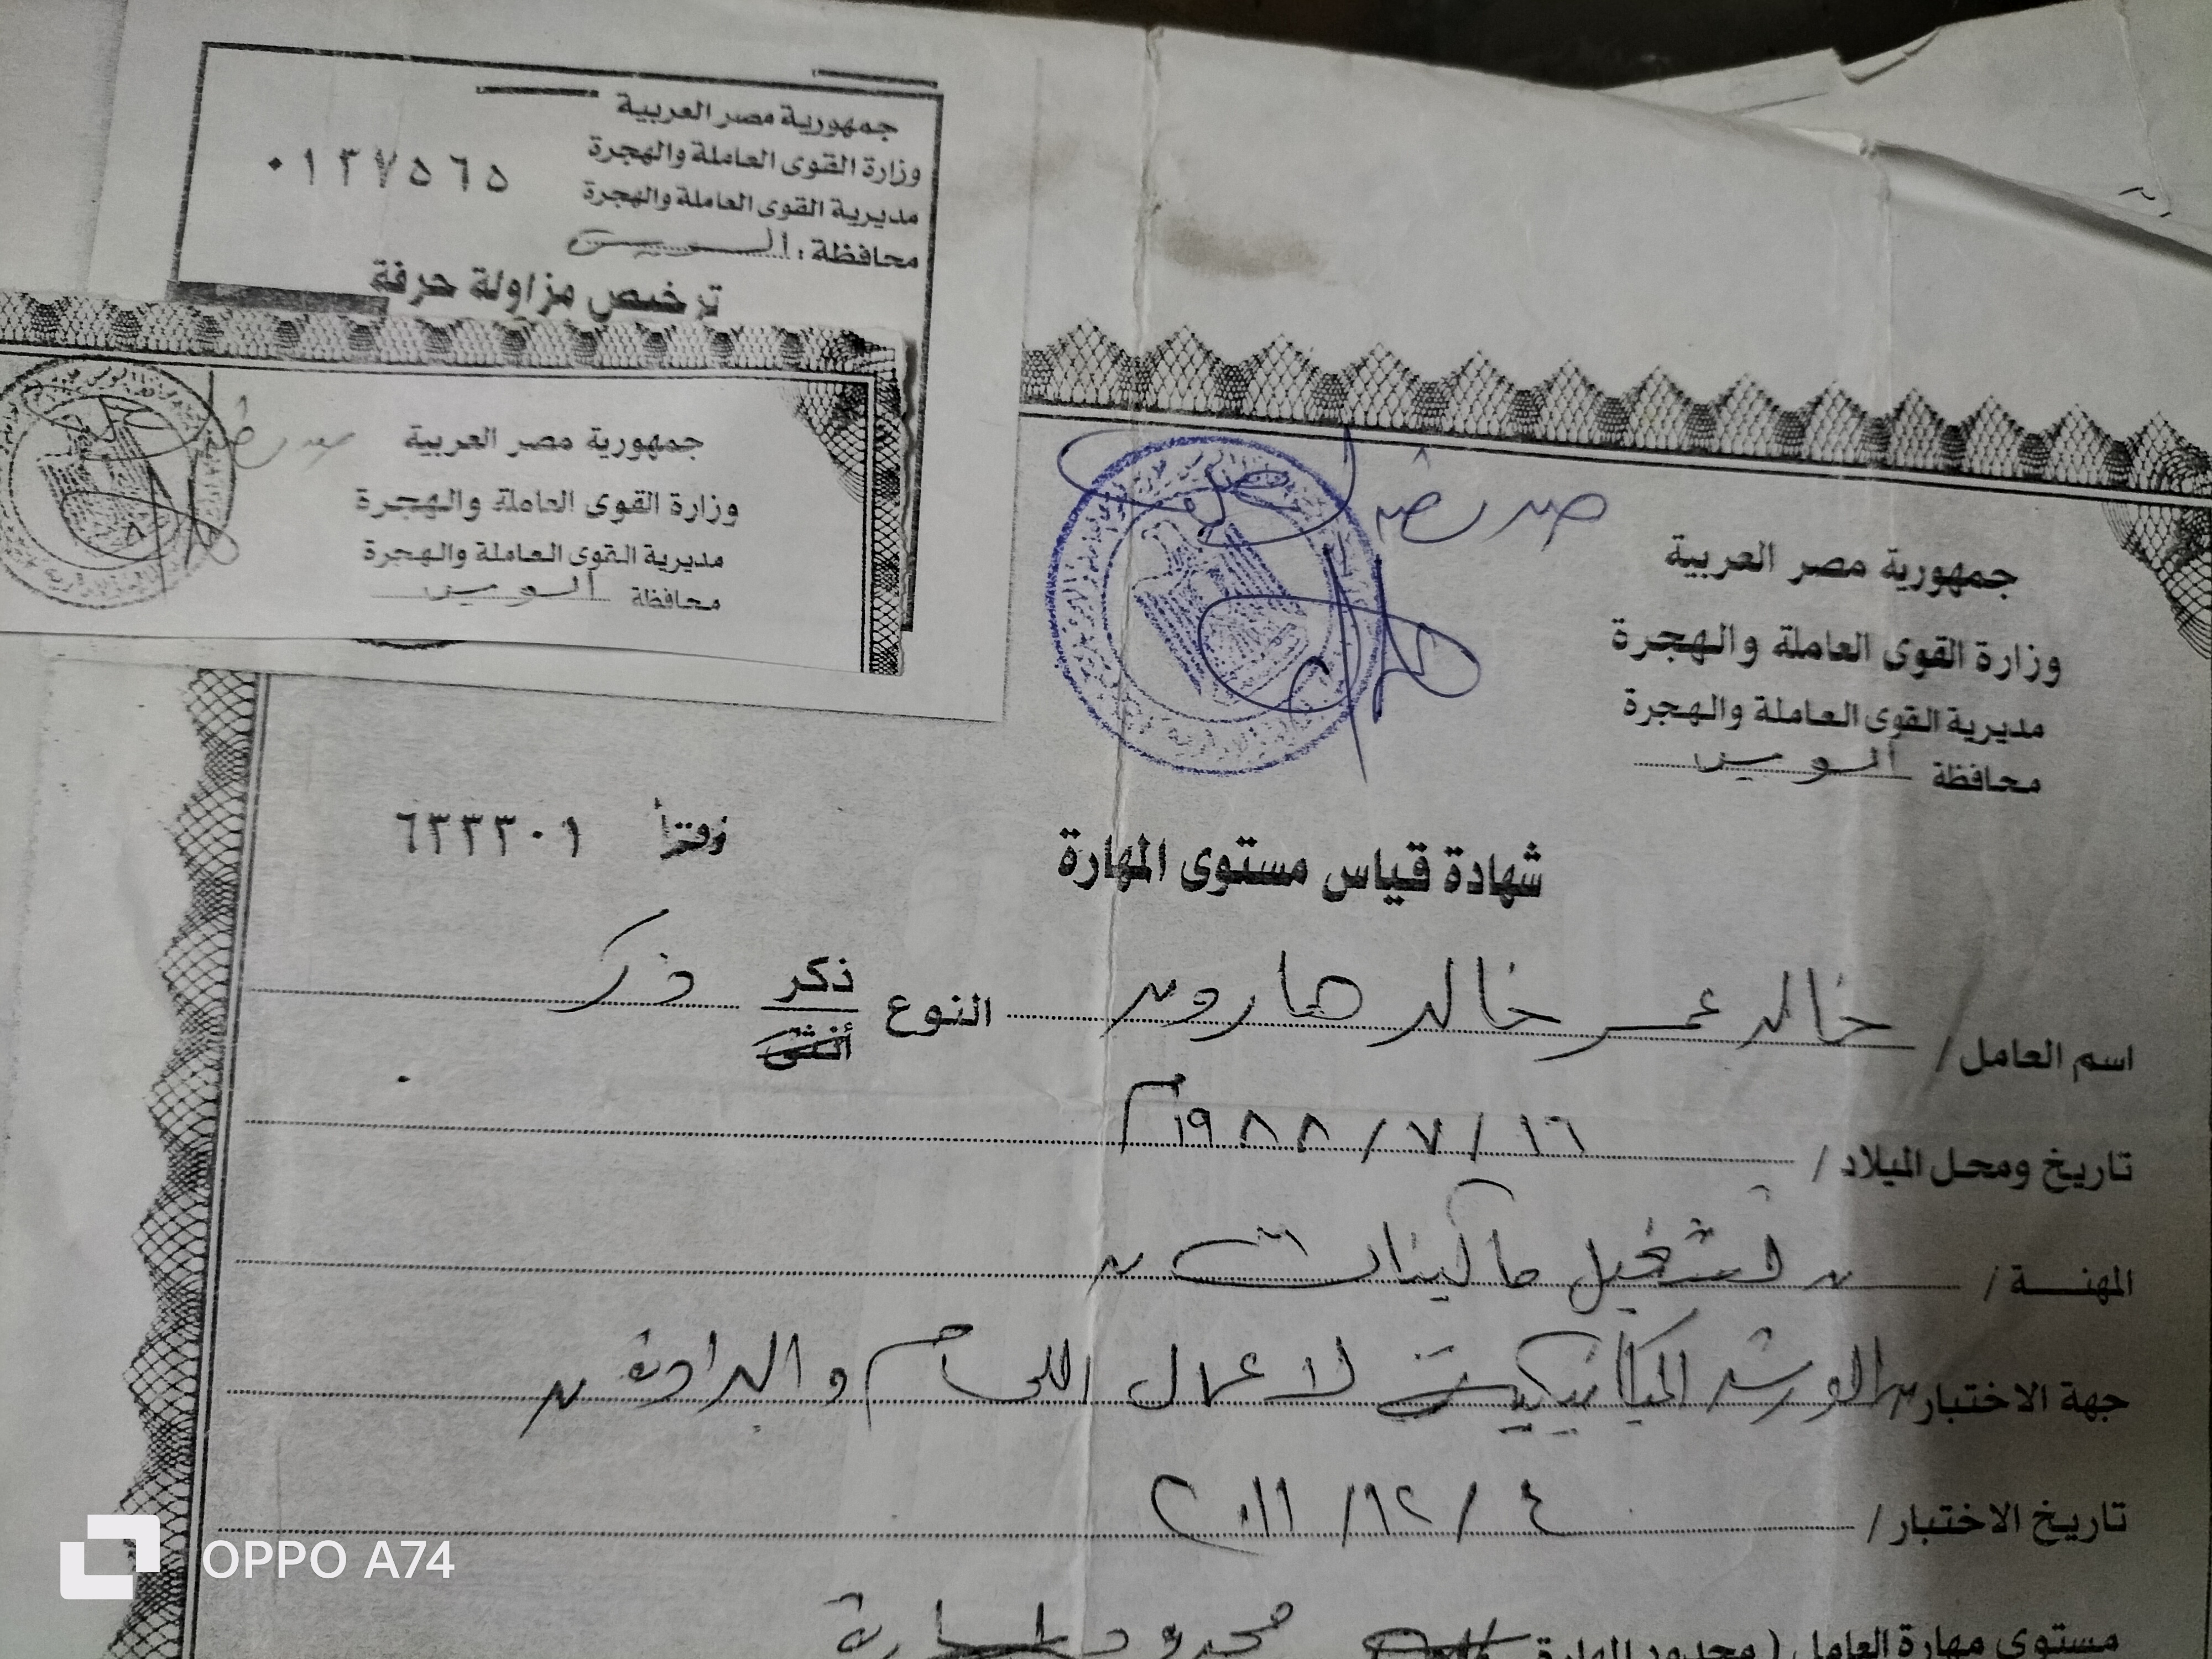 جمهورية مصر العربية
وزارة القوى العاملة والهجرة
مديرية القوى العاملة والهجرة
محافظة : السويس
٠١٣٧٥٦٥
ترخيص مزاولة حرفة
جمهورية مصر العربية
وزارة القوى العاملة والهجرة
مديرية القوى العاملة والهجرة
محافظة السويس
جمهورية مصر العربية
وزارة القوى العاملة والهجرة
مديرية القوى العاملة والهجرة
محافظة السويس
٦٣٣٣٠١
شهادة قياس مستوى المهارة
اسم العامل / خالد عمر خالد هارون النوع ذكر أنثى ذكر
تاريخ ومحل الميلاد / ١٦ / ٧ / ١٩٨٨ م
المهنة / تشغيل ماكينات
جهة الاختبار الورشة الميكانيكية لاعمال اللحام والبرادة
تاريخ الاختبار / ٤ / ١٢ / ٢٠١١
مستوى مهارة العامل ( محدود المهارة محدود المهارة
OPPO A74